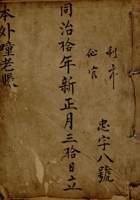 利市
伀官
忠字八號
同治拾年新正月三拾日立
本外疃老賬